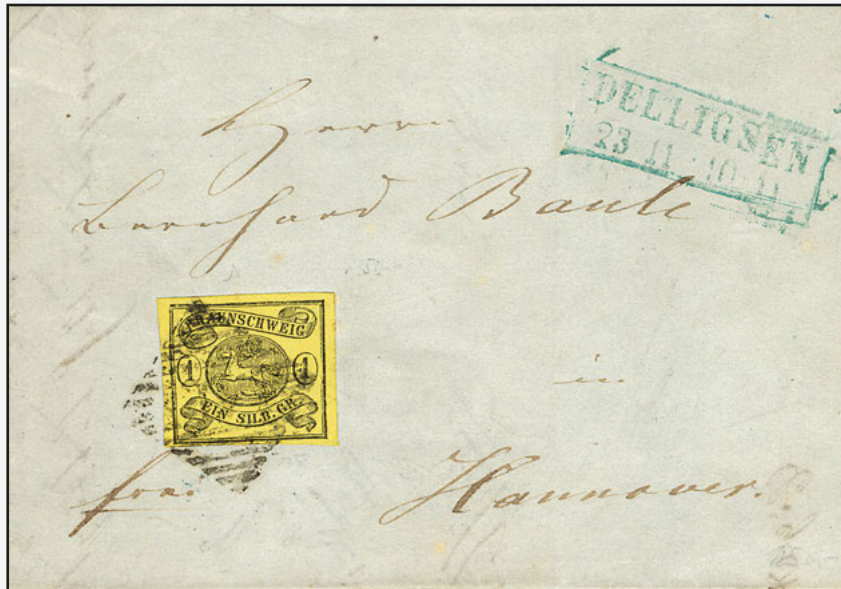 DELLIGSEN
23 11 10-11
Herrn
Bernhard Baule
BRAUNSCHWEIG
1 1
EIN SILB. GR.
in
frei Hannover.